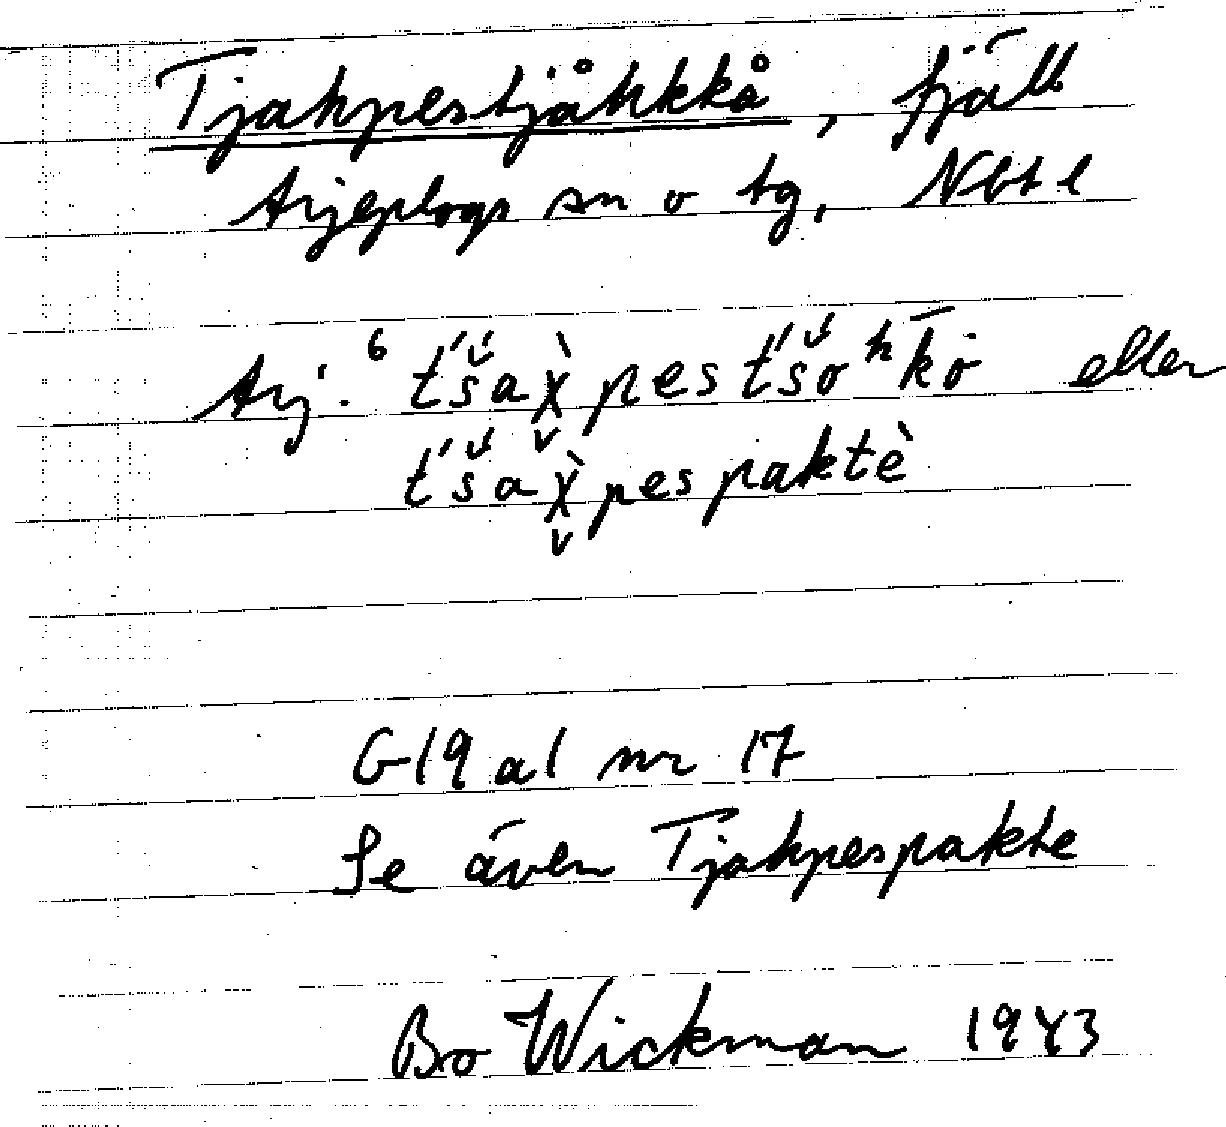 Tjahpestjåhkkå, fjäll
Arjeplogs sn o tg, Nbt l
Arj. ⁶ t́š́aχ̬̀pest́š́oʰk̄o eller
t́š́aχ̬̀pespaktè
G19 a1 nr 17
Se även Tjahpespakte
Bo Wickman 1943